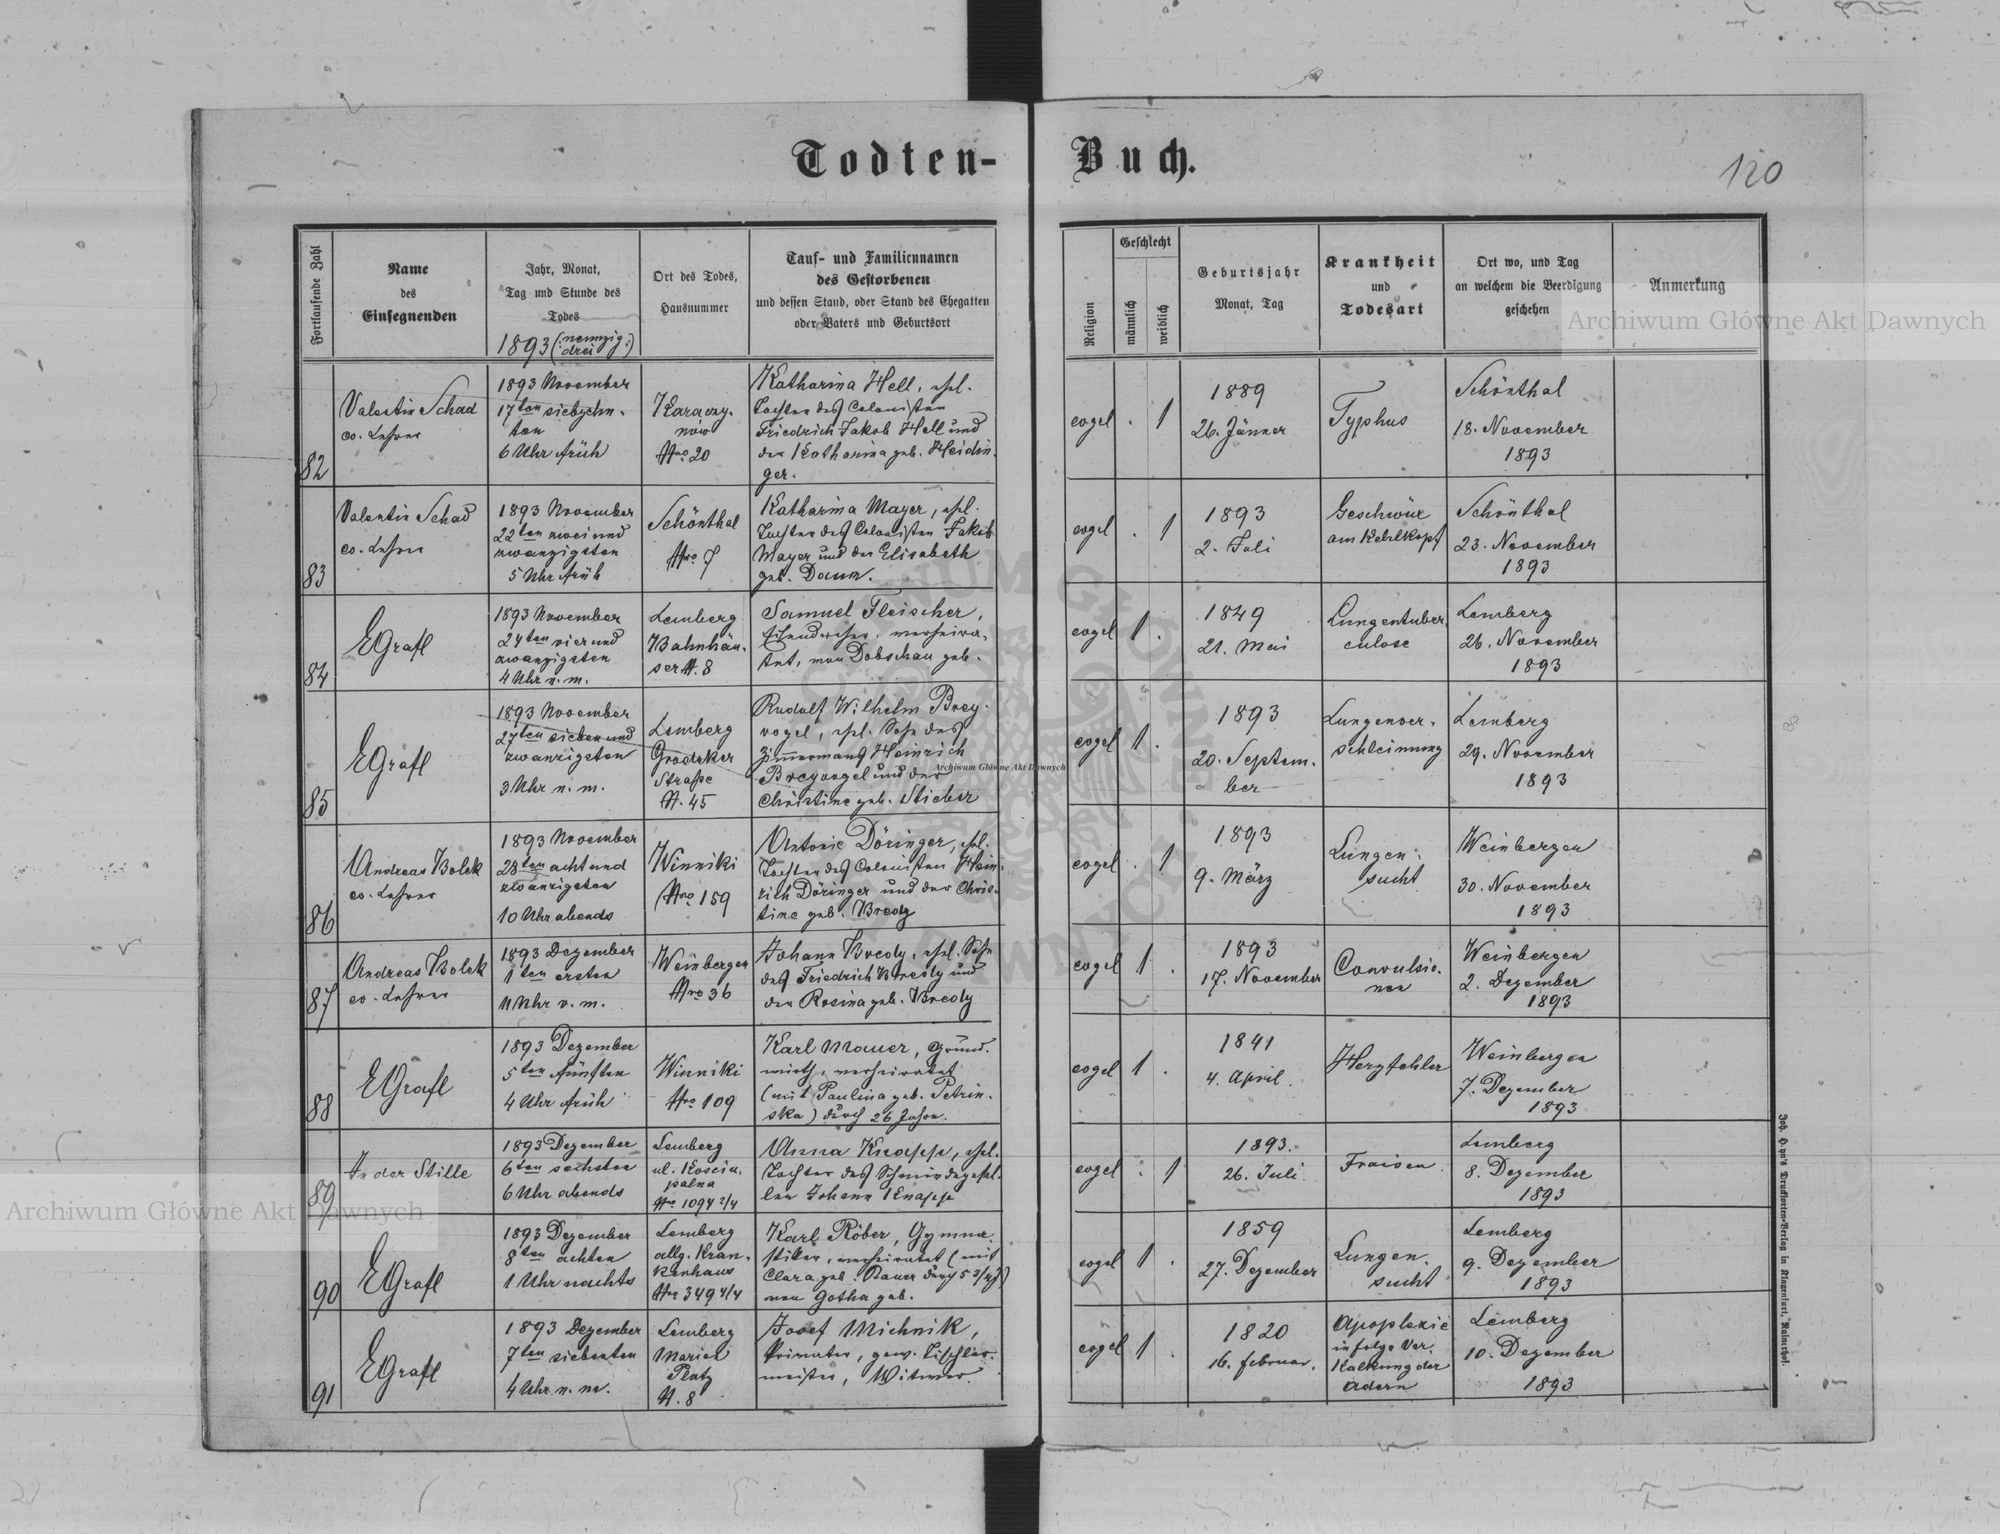 Todten-Buch.
120
Fortlaufende Zahl
Name
des
Einsegnenden
Jahr, Monat,
Tag und Stunde des
Todes
1893 (: neunzig :)
drei
Ort des Todes,
Hausnummer
Tauf- und Familiennamen
des Gestorbenen
und dessen Stand, oder Stand des Ehegatten
oder Vaters und Geburtsort
Religion
Geschlecht
männlich
weiblich
Geburtsjahr
Monat, Tag
Krankheit
und
Todesart
Ort wo, und Tag
an welchem die Beerdigung
geschehen
Anmerkung
82
Valentin Schad
ev. Lehrer
1893 November
17ten siebzehn-
ten
6 Uhr früh
Karaczy-
nów
Nro 20
Katharina Hell, ehel.
Tochter des Colonisten
Friedrich Jakob Hell und
der Katharina geb. Heidin-
ger.
evgel
. 1
1889
26. Jänner
Typhus
Schönthal
18. November
1893
83
Valentin Schad
ev. Lehrer
1893 November
22ten zwei und
zwanzigsten
5 Uhr früh
Schönthal
Nro 7
Katharina Mayer, ehel.
Tochter des Colonisten Jakob
Mayer und der Elisabeth
geb. Daum.
evgel
. 1
1893
2. Juli
Geschwür
am Kehlkopf
Schönthal
23. November
1893
84
EGrafl
1893 November
24ten vier und
zwanzigsten
4 Uhr n. m.
Lemberg
Bahnhäu-
ser N. 8
Samuel Fleischer,
verheira-
tet, von Dobschau geb.
evgel
1 .
1849
21. Mai
Lungentuber
culose
Lemberg
26. November
1893
85
EGrafl
1893 November
27ten sieben und
zwanzigsten
3 Uhr n. m.
Lemberg
Grodeker
Straße
N. 45
Rudolf Wilhelm Brey-
vogel, ehel. Sohn des
Zimmermans Heinrich
Breyvogel und der
Christine geb. Stieber
evgel
1 .
1893
20. Septem-
ber
Lungenver-
schleimung
Lemberg
29. November
1893
86
Andreas Bolek
ev. Lehrer
1893 November
28ten acht und
zwanzigsten
10 Uhr abends
Winniki
Nro 159
Antonie Döringer, ehel.
Tochter des Colonisten Hein-
rich Döringer und der Chris-
tine geb. Bredy
evgel
. 1
1893
9. März
Lungen-
sucht
Weinbergen
30. November
1893
87
Andreas Bolek
ev. Lehrer
1893 Dezember
1ten ersten
11 Uhr v. m.
Weinbergen
Nro 36
Johann Bredy, ehel. Sohn
des Friedrich Bredy und
der Rosina geb. Bredy
evgel
1 .
1893
17. November
Convulsio-
nen
Weinbergen
2. Dezember
1893
88
EGrafl
1893 Dezember
5ten fünften
4 Uhr früh
Winniki
Nro 109
Karl Mauer, Grund-
wirth, verheiratet
(mit Paulina geb. Petrin-
ska) durch 26 Jahre.
evgel
1 .
1841
4. April.
Herzfehler
Weinbergen
7. Dezember
1893
89
In der Stille
1893 Dezember
6ten sechsten
6 Uhr abends
Lemberg
ul. Kościu-
palna
Nro 1094 2/4
Anna Knappe, ehel.
Tochter des Schmiedegesel-
len Johann Knappe
evgel
. 1
1893.
26. Juli.
Fraisen.
Lemberg
8. Dezember
1893
90
EGrafl
1893 Dezember
8ten achten
1 Uhr nachts
Lemberg
allg. Kran-
kenhaus
Nro 349 4/4
Karl Röber, Gymna-
stiker, verheiratet (mit
Clara geb. Bauer durch 5 3/4 J)
von Gotha geb.
evgel
1 .
1859
27. Dezember
Lungen-
sucht
Lemberg
9. Dezember
1893
91
EGrafl
1893 Dezember
7ten siebenten
4 Uhr n. m.
Lemberg
Marien
Platz
N. 8
Josef Michnik,
Privater, gew. Tischler-
meister, Witwer.
evgel
1 .
1820
16. Februar.
Apoplexie
infolge Ver-
kalkung der
Adern
Lemberg
10. Dezember
1893
Joh. Leon's Drucksorten-Verlag in Klagenfurt, Rainerhof.
Archiwum Główne Akt Dawnych
Archiwum Główne Akt Dawnych
Archiwum Główne Akt Dawnych